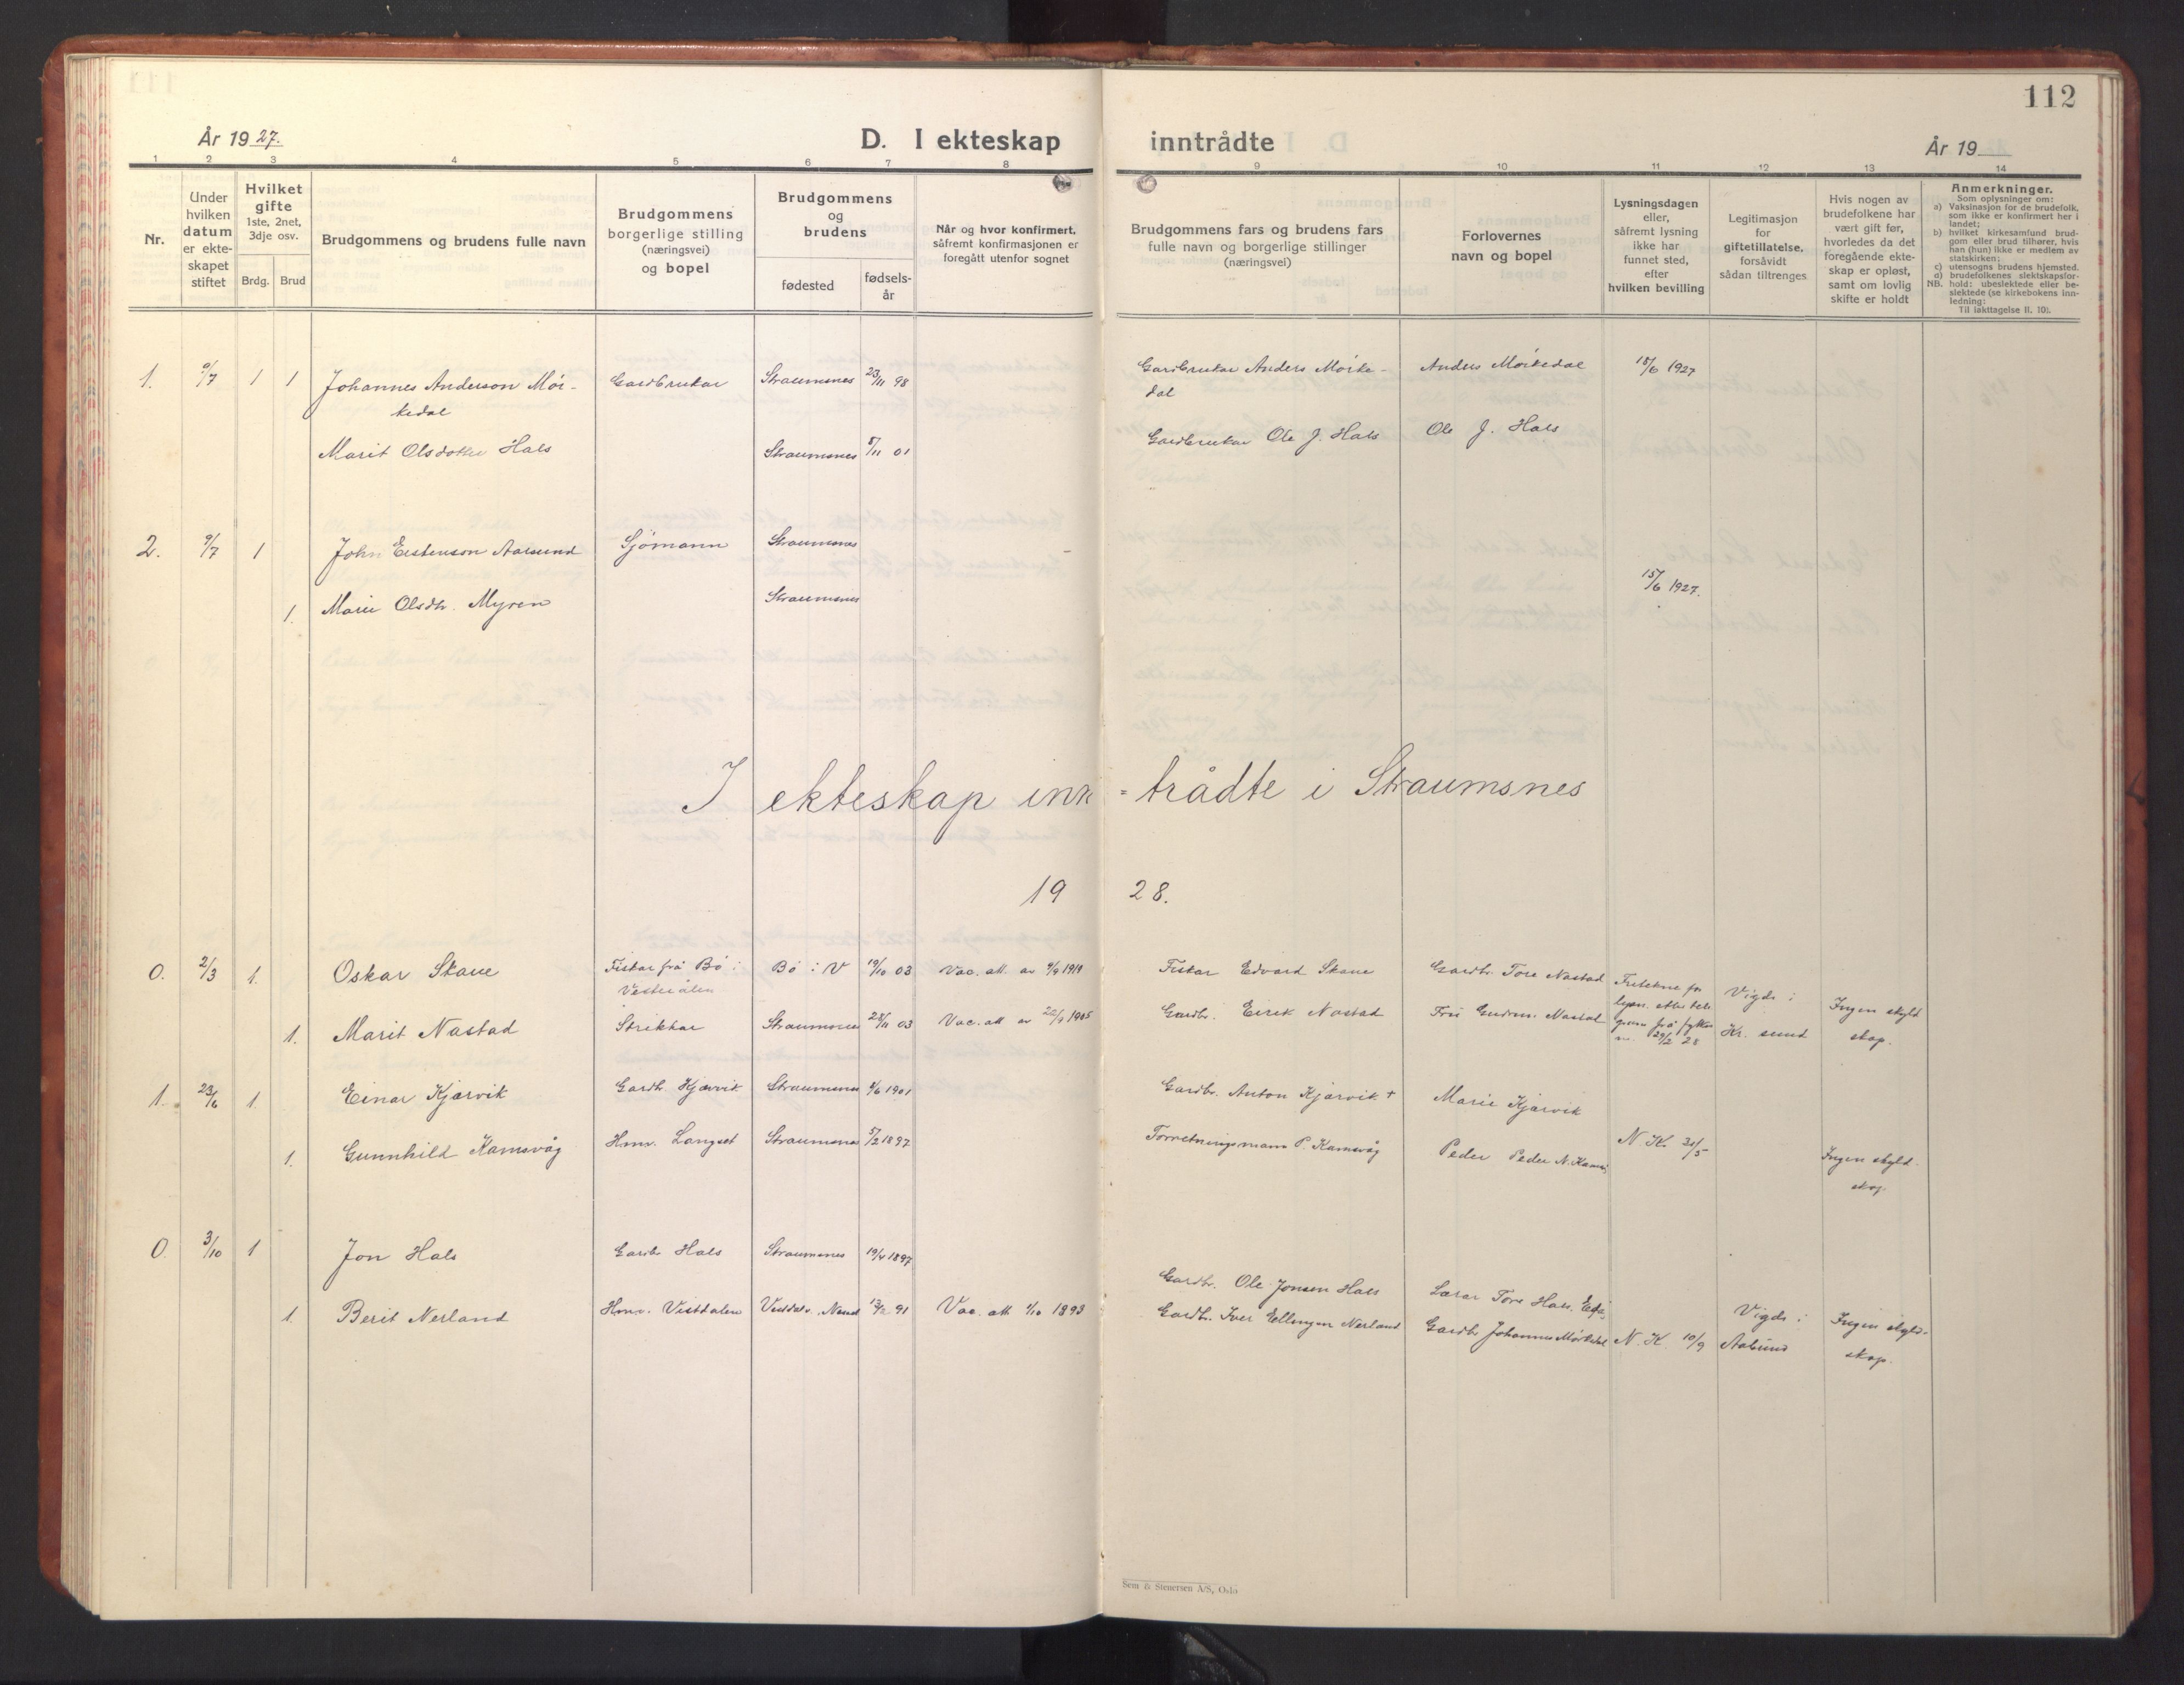 112
År 1927.
D. I ekteskap inntrådte
År 19
1 2 3 4 5 6 7 8 9 10 11 12 13 14
Nr.
Under
hvilken
datum
er ekte-
skapet
stiftet
Hvilket
gifte
1ste, 2net,
3dje osv.
Brdg. Brud
Brudgommens og brudens fulle navn
Brudgommens
borgerlige stilling
(næringsvei)
og bopel
Brudgommens
og
brudens
fødested
fødsels-
år
Når og hvor konfirmert,
såfremt konfirmasjonen er
foregått utenfor sognet
Brudgommens fars og brudens fars
fulle navn og borgerlige stillinger
(næringsvei)
Forlovernes
navn og bopel
Lysningsdagen
eller,
såfremt lysning
ikke har
funnet sted,
efter
hvilken bevilling
Legitimasjon
for
giftetillatelse,
forsåvidt
sådan tiltrenges
Hvis nogen av
brudefolkene har
vært gift før,
hvorledes da det
foregående ekte-
skap er opløst,
samt om lovlig
skifte er holdt
Anmerkninger.
Som oplysninger om:
a) Vaksinasjon for de brudefolk,
som ikke er konfirmert her i
landet;
b) hvilket kirkesamfund brud-
gom eller brud tilhører, hvis
han (hun) ikke er medlem av
statskirken;
c) utensogns brudens hjemsted.
d) brudefolkenes slektskapsfor-
NB. hold: ubeslektede eller be-
slektede (se kirkebokens inn-
ledning:
Til iakttagelse II. 10).
1. 9/7 1 1 Johannes Anderson Mör- Gardbrukar Straumsnes 23/11 98 Gardbrukar Anders Mörke- Anders Mörkedal 15/6 1927
kedal dal
Marit Olsdotter Hals Straumsnes 5/11 01 Gardbrukar Ole J. Hals Ole J. Hals
2. 9/7 1 John Erstenson Aarsund Sjömann Straumsnes
1. Marie Olsdtr. Myren Straumsnes 15/6 1927.
I ekteskap inn=trådte i Straumsnes
1928.
0. 2/3 1. Oskar Skave Fiskar frå Bö i Bö i V 19/10 03 Vac. att. av 9/9 1919 Fiskar Edvard Skave Gardbr. Tore Nastad Fritekne for Vigde i
Vesterålen
1. Marit Nastad Strikkar Straumsnes 03 Vac. att av 1905 Gardbr. Eirik Nastad Fru Nastad frå 29/2 28 Kr. sund Ingen skyld
skap.
1. 23/6 1. Einar Kjørvik Gardbr. Kjørvik Straumsnes 1901 Gardbr. Anton Kjørvik + Marie Kjørvik
1. Gunnhild Kamsvåg Hmv. Langset Straumsnes 5/2 1897 Forretningsmann P. Kamsvåg Peder Peder N. N. K. 31/5 Ingen skyld-
skap.
0. 3/10 1 Jon Hals Gardbr Hals Straumsnes 19/4 1897 Gardbr. Ole Jonsen Hals Lærar Tore Hals.
1. Berit Nerland Hmv. Vistdalen 91 Vac. att 1/10 1893 Gardbr. Iver Ellingsen Nerland Gardbr Johannes Mörkedal N. K. 10/9 Vigde i Ingen skyld-
skap.
Sem & Stenersen A/S, Oslo